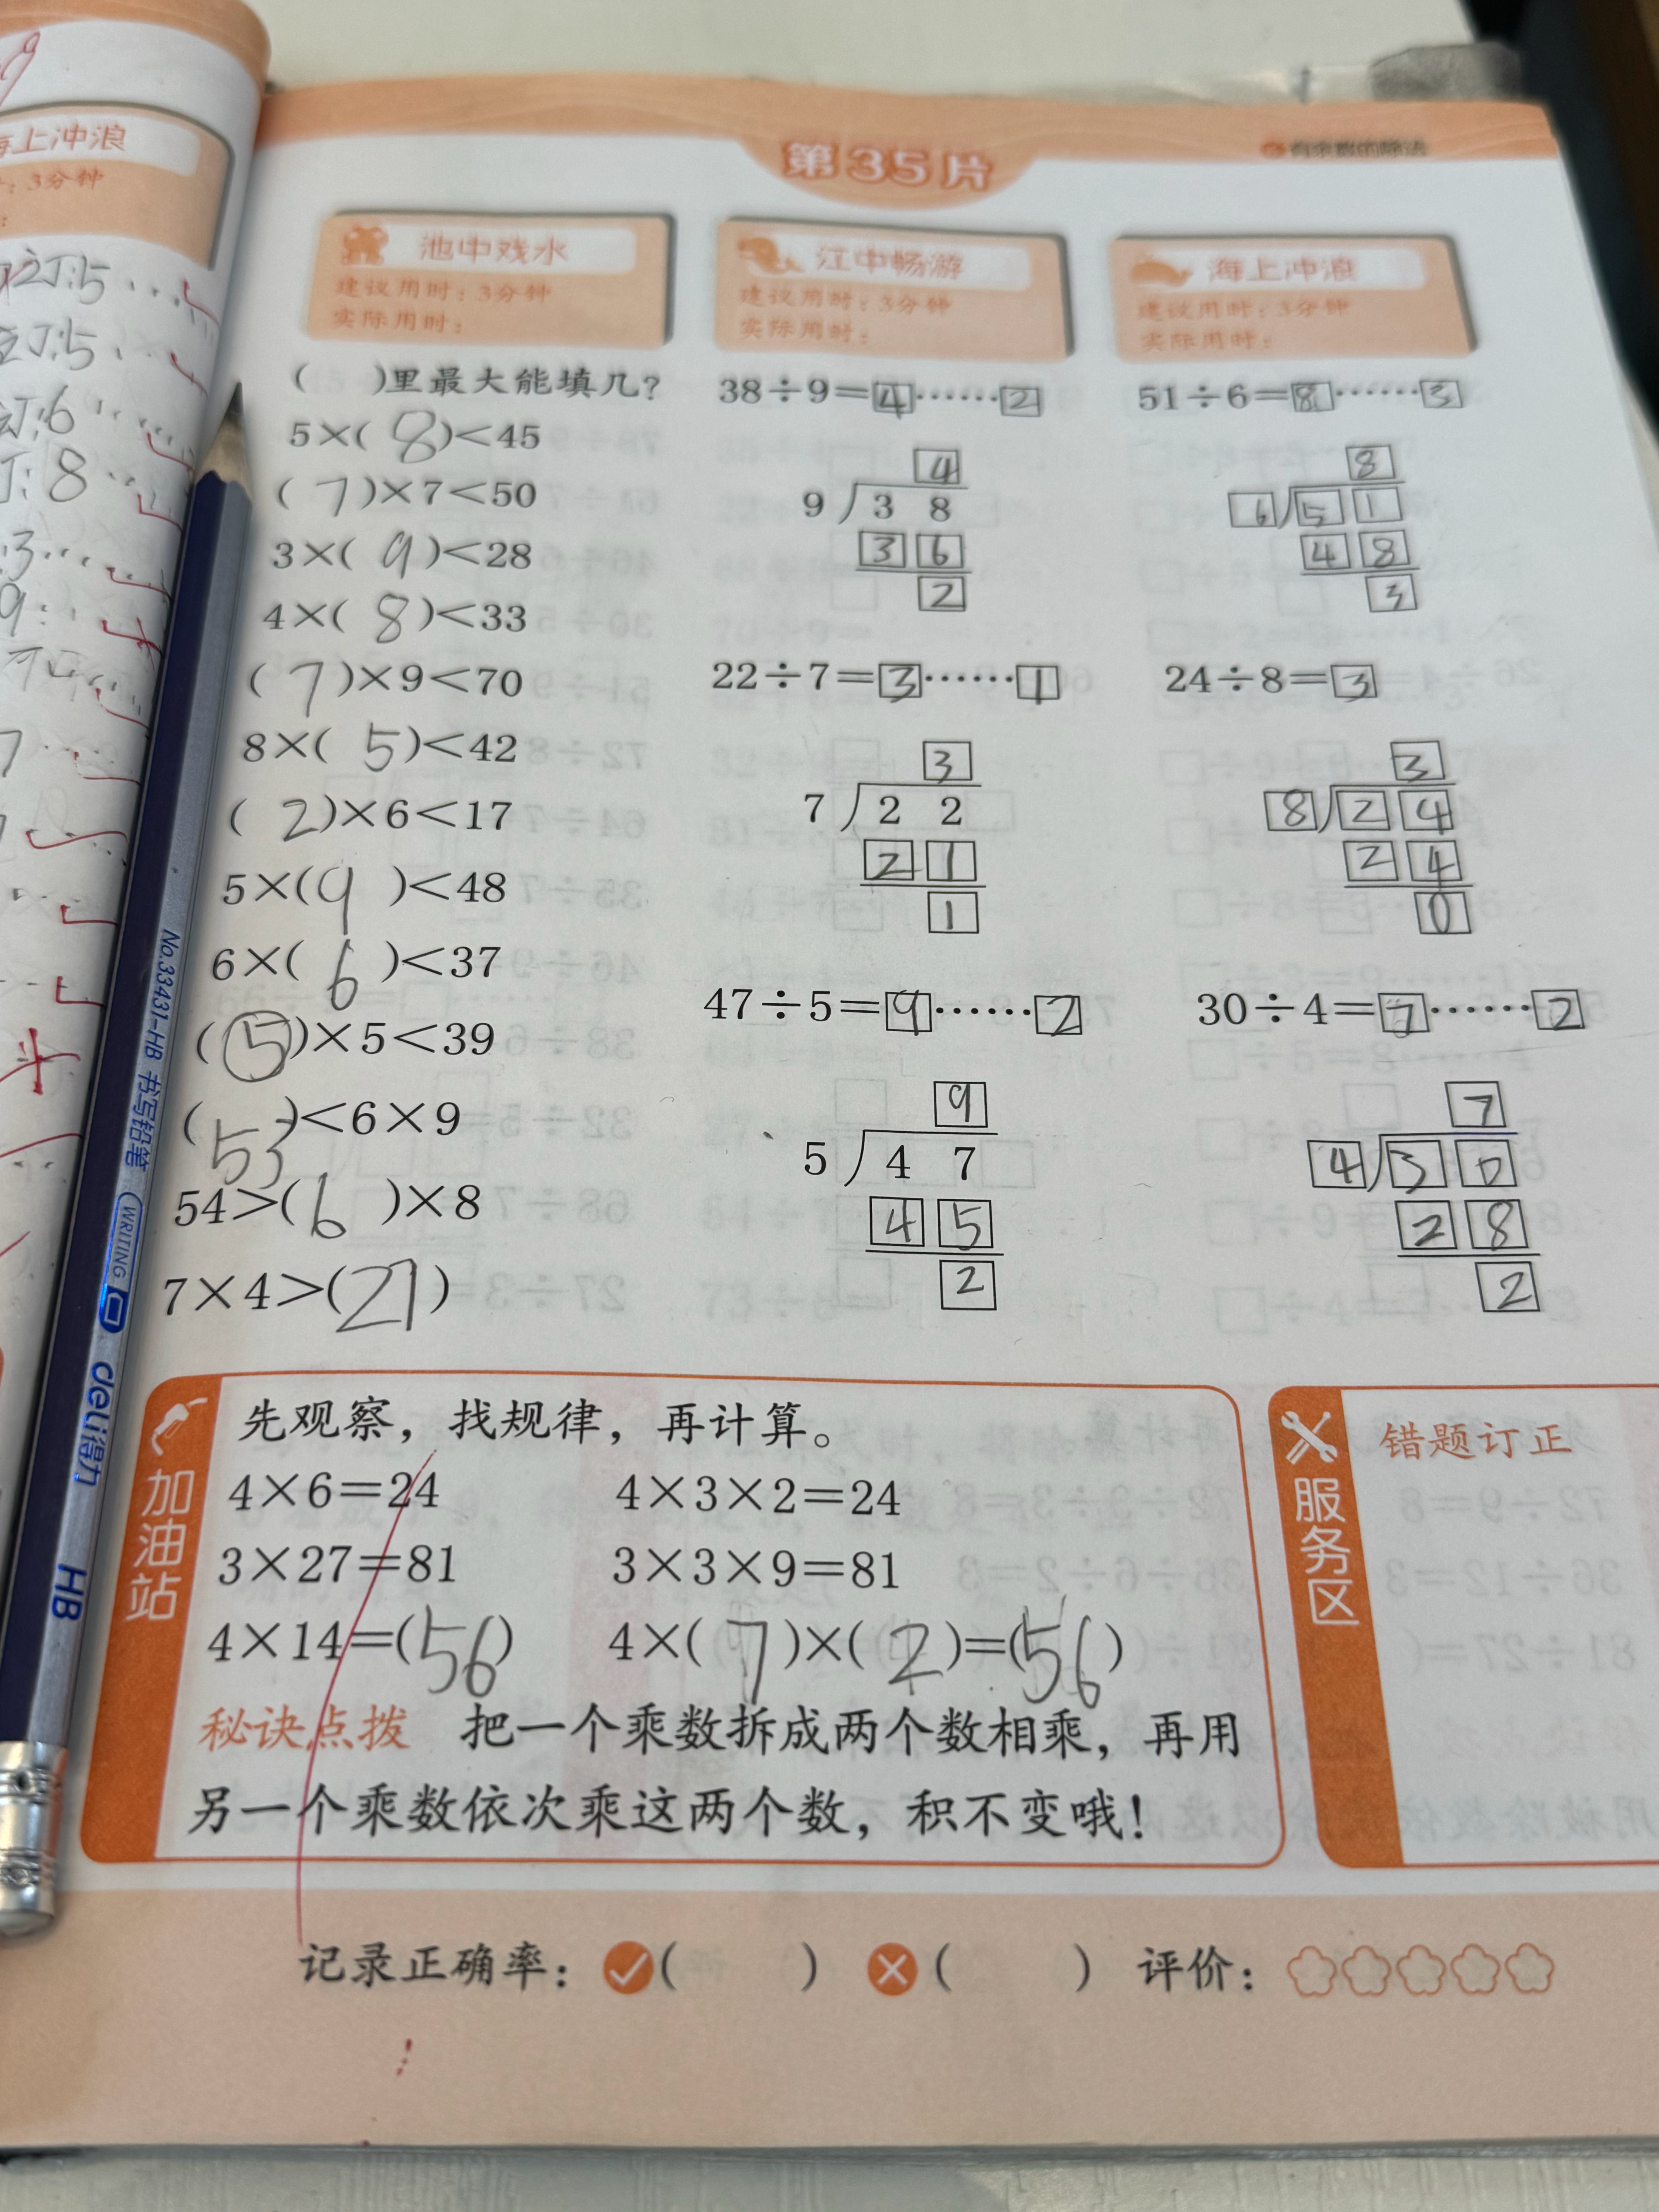 海上冲浪
：3分钟
第35片
有余数的除法
池中戏水
建议用时：3分钟
实际用时：
( )里最大能填几？
5×( 8 )<45
( 7 )×7<50
3×( 9 )<28
4×( 8 )<33
( 7 )×9<70
8×( 5 )<42
( 2 )×6<17
5×( 9 )<48
6×( 6 )<37
( 5 )×5<39
( 53 )<6×9
54>( 6 )×8
7×4>( 21 )
江中畅游
建议用时：3分钟
实际用时：
38÷9=4……2
4
9 3 8
3 6
2
22÷7=3……1
3
7 2 2
2 1
1
47÷5=9……2
9
5 4 7
4 5
2
海上冲浪
建议用时：3分钟
实际用时：
51÷6=8……3
8
6 5 1
4 8
3
24÷8=3
3
8 2 4
2 4
0
30÷4=7……2
7
4 3 0
2 8
2
加油站
先观察，找规律，再计算。
4×6=24 4×3×2=24
3×27=81 3×3×9=81
4×14=(56) 4×(7)×(2)=(56)
秘诀点拨 把一个乘数拆成两个数相乘，再用
另一个乘数依次乘这两个数，积不变哦！
服务区
错题订正
记录正确率： ( ) ( ) 评价：
No.33431-HB 书写铅笔 WRITING deli得力 HB